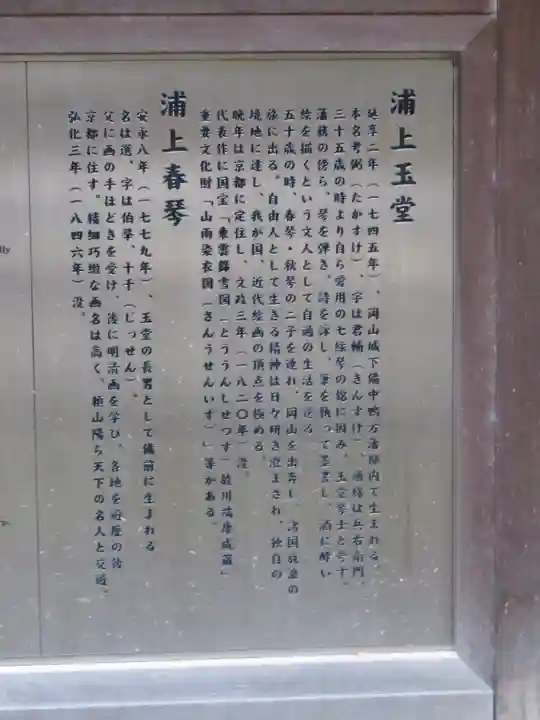 浦上玉堂
延享二年(一七四五年)、岡山城下備中鴨方藩邸内で生まれる。
本名孝弼(たかすけ)、字は君輔(きんすけ)、通称は兵右衛門。
三十五歳の時より自ら愛用の七絃琴の銘に因み、玉堂琴士と号す。
藩務の傍ら、琴を弾き、詩を詠し、筆を執って墨書し、酒に酔い
絵を描くという文人として自適の生活を送る。
五十歳の時、春琴・秋琴の二子を連れ、岡山を出奔し、諸国放浪の
旅に出る。自由人として生きる精神は日々研き澄まされ、独自の
境地に達し、我が国、近代絵画の頂点を極める。
晩年は京都に定住し、文政三年(一八二〇年)没。
代表作に国宝「東雲篩雪図(とううんしせつず)故川端康成蔵」
重要文化財「山雨染衣図(さんうせんいず)」等がある。
浦上春琴
安永八年(一七七九年)、玉堂の長男として備前に生まれる
名は選、字は伯挙、十千(じっせん)。
父に画の手ほどきを受け、後に明清画を学び、各地を遊歴の後
京都に住す。精細巧緻な画名は高く、頼山陽ら天下の名人と交遊。
弘化三年(一八四六年)没。
lly